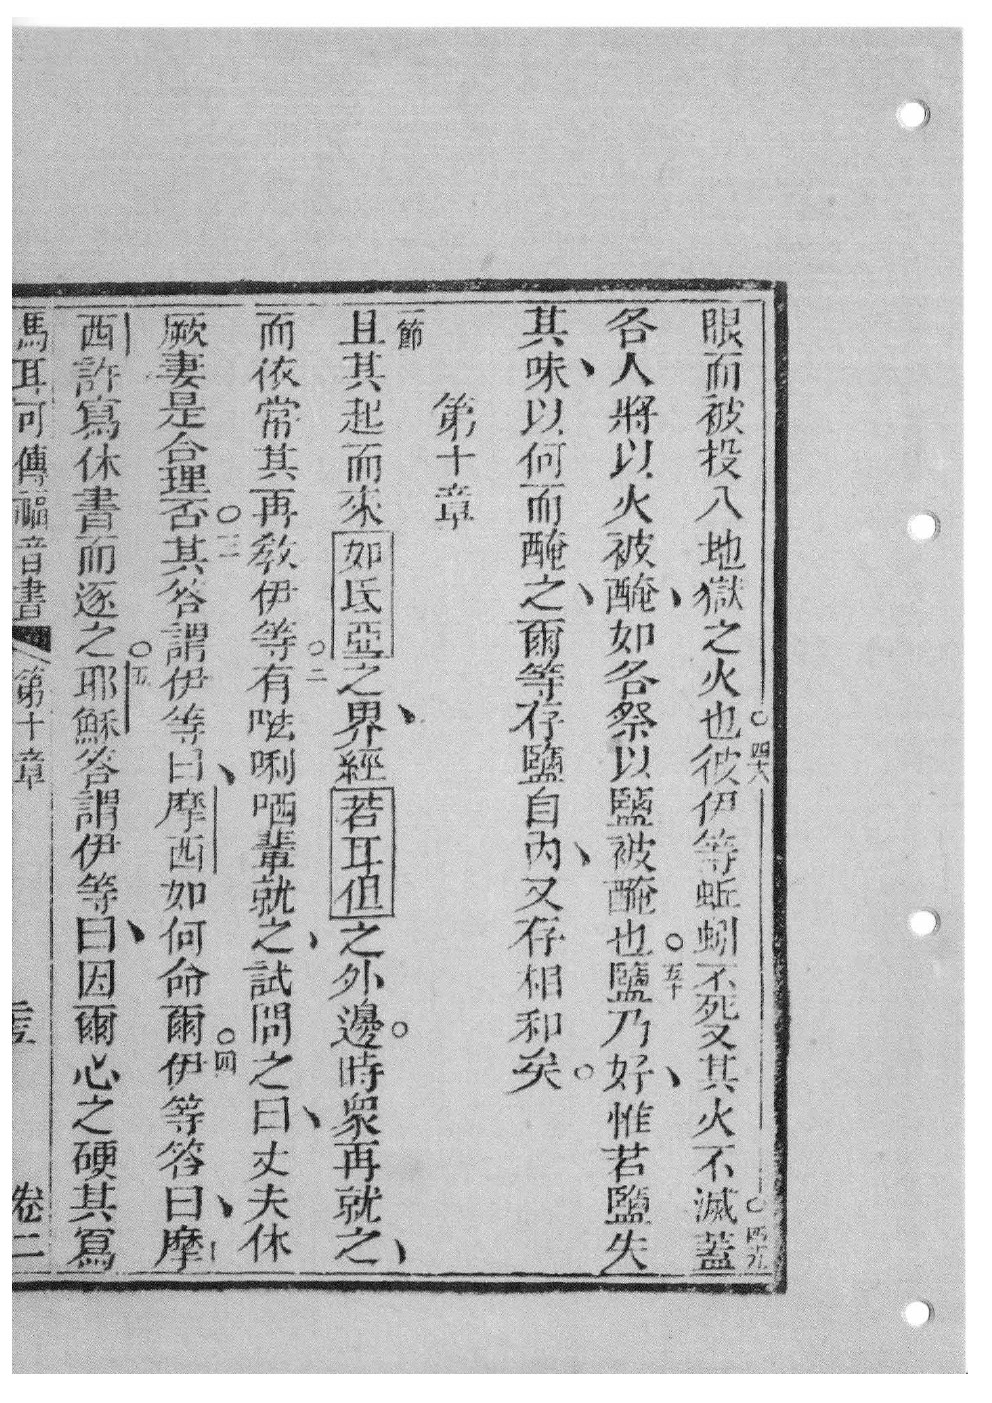 眼而被投入地獄之火也。四八彼伊等蚯蚓不死又其火不滅。四九蓋
各人將以火被醃、如各祭以鹽被醃也。五十鹽乃好、惟若鹽失
其味、以何而醃之、爾等存鹽自內、又存相和矣。
第十章
一節且其起而來如氐亞之界、經若耳但之外邊。時衆再就之、
而依常其再教伊等。二有𠵽唎哂輩就之、試問之曰、丈夫休
厥妻是合理否。三其答謂伊等曰、摩西如何命爾。四伊等答曰、摩
西許寫休書而逐之。五耶穌答謂伊等曰、因爾心之硬其寫
馬耳可傳福音書 第十章 卷二